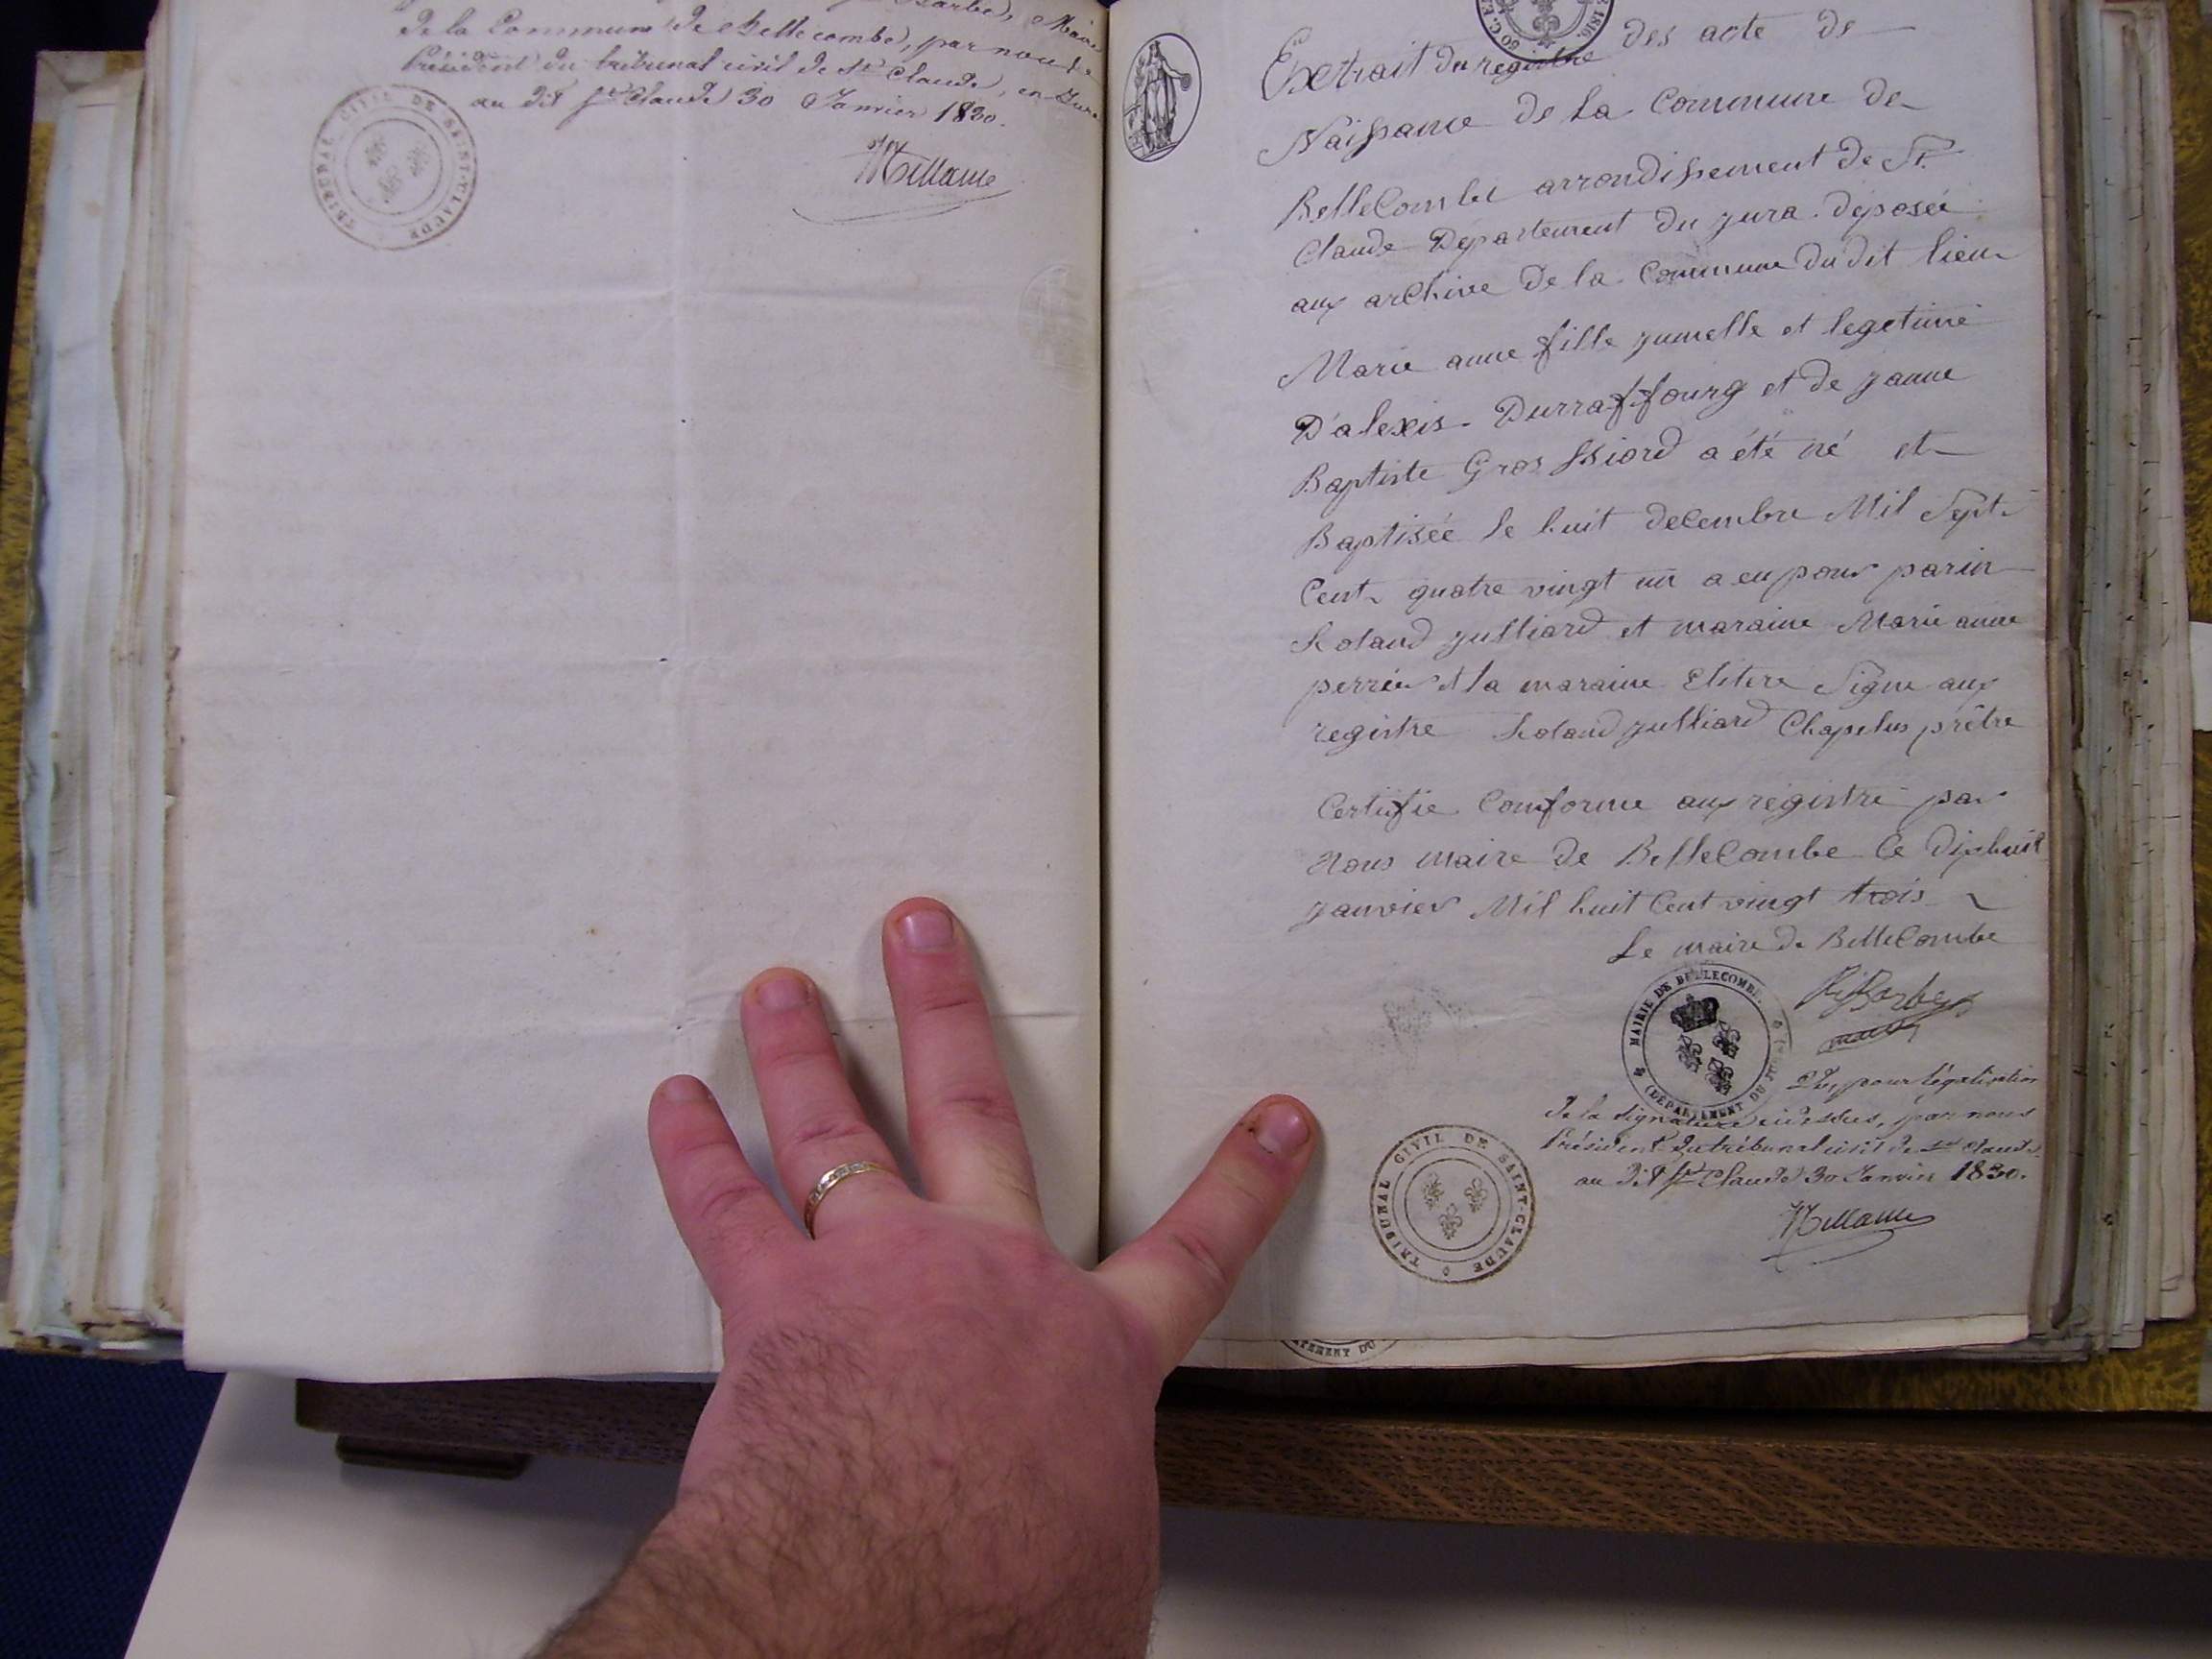 de la Commune de Bellecombe, par nous
Président du tribunal civil de St Claude, en
au dit St Claude 30 Janvier 1830.
TRIBUNAL CIVIL DE SAINT-CLAUDE
Extrait du registre des acte de
Naissance de la Commune de
BelleCombe arrondissement de St.
Claude Departement du jura deposée
aux archive de la Commune du dit lieu
Marie anne fille jumelle et legetime
D'alexis Durraffourg et de janne
Baptiste Gros ssiord a été né et
Baptisée le huit decembre Mil Sept
Cent quatre vingt un a eu pour parin
Roland julliard et maraine Marie anne
perrier et la maraine Eliterre Signe aux
registre Roland julliard Chapelus prêtre
Certifie Conforme aux registre par
Nous maire de BelleCombe le dixhuit
janvier Mil huit Cent vingt trois
Le maire de BelleCombe
MAIRIE DE BELLECOMBE (DÉPARTEMENT DU JURA)
Vu, pour légalisation
de la signature ci dessus, par nous
Président du tribunal civil de St Claude
au dit St Claude 30 Janvier 1830.
TRIBUNAL CIVIL DE SAINT-CLAUDE